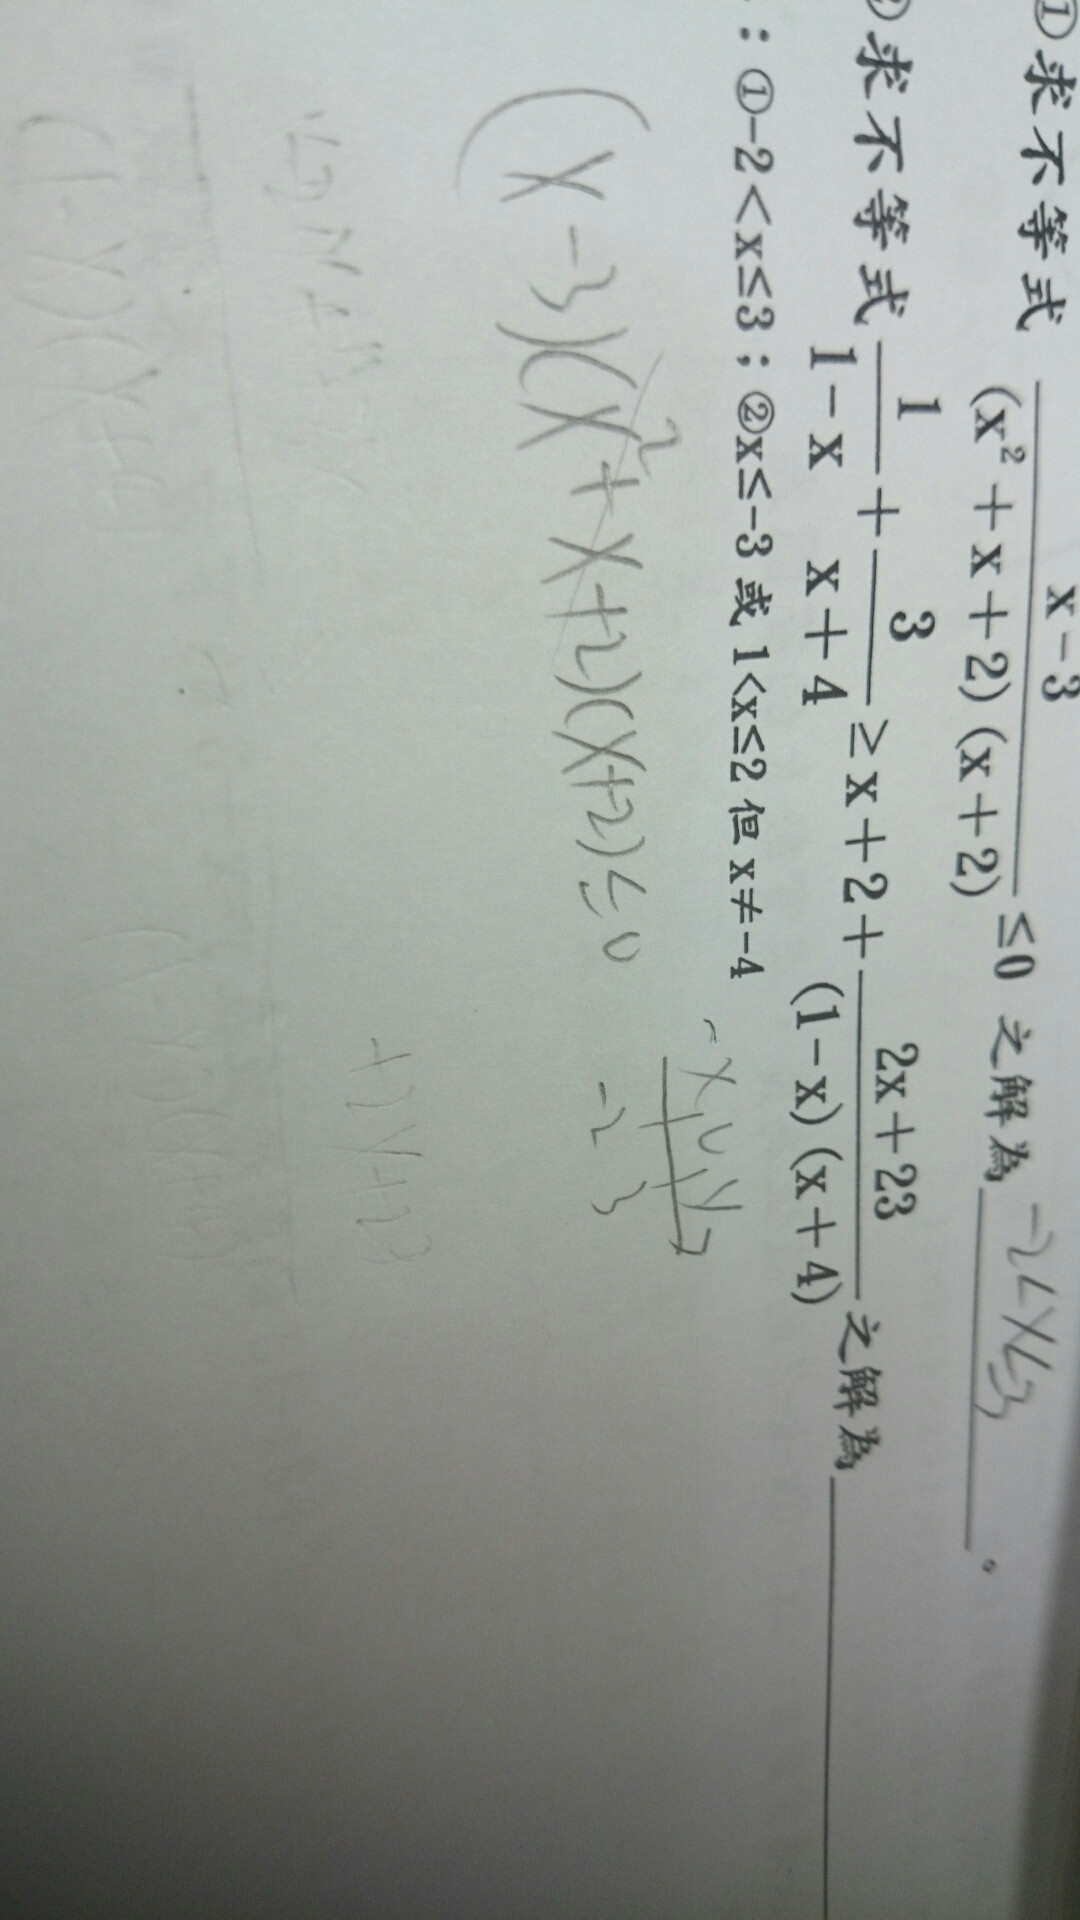 ①求不等式 (x-3)/((x²+x+2)(x+2)) ≤0 之解為 -2<x≤3 。
求不等式 1/(1-x) + 3/(x+4) ≥x+2+ (2x+23)/((1-x)(x+4)) 之解為
：①-2<x≤3；②x≤-3 或 1<x≤2 但 x≠-4
(x-3)(x²+x+2)(x+2)≤0
-2 3
+2x+23
(1-x)(x+4)